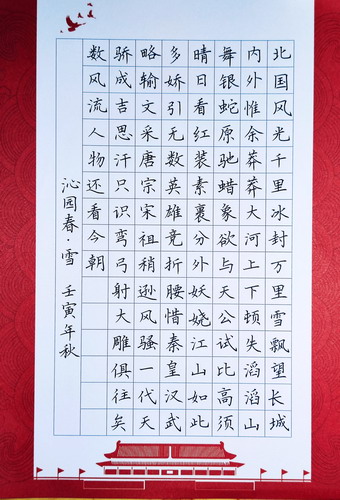 北国风光千里冰封万里雪飘望长城
内外惟余莽莽大河上下顿失滔滔山
舞银蛇原驰蜡象欲与天公试比高须
晴日看红装素裹分外妖娆江山如此
多娇引无数英雄竞折腰惜秦皇汉武
略输文采唐宗宋祖稍逊风骚一代天
骄成吉思汗只识弯弓射大雕俱往矣
数风流人物还看今朝
沁园春·雪 壬寅年秋